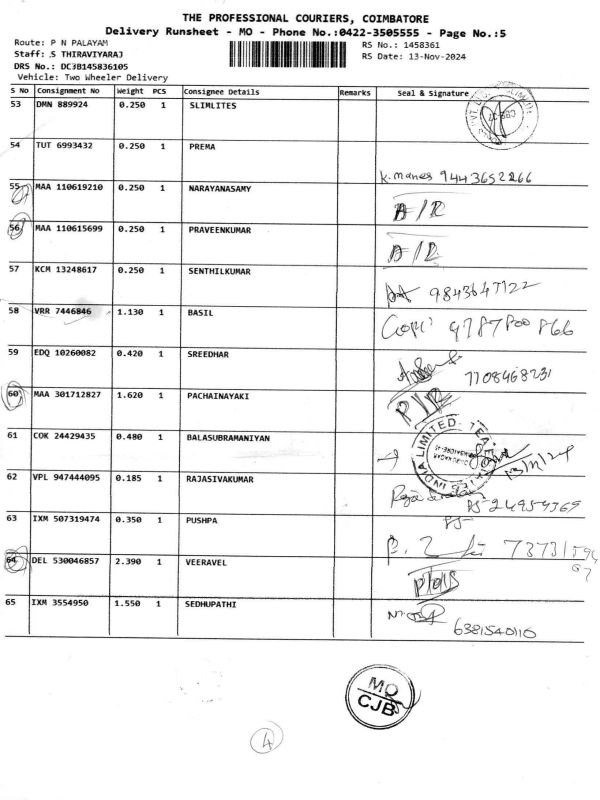 THE PROFESSIONAL COURIERS, COIMBATORE
Delivery Runsheet - MO - Phone No.:0422-3505555 - Page No.:5
Route: P N PALAYAM RS No.: 1458361
Staff: S THIRAVIYARAJ RS Date: 13-Nov-2024
DRS No.: DCJB145836105
Vehicle: Two Wheeler Delivery
S No Consignment No Weight PCS Consignee Details Remarks Seal & Signature
53 DMN 889924 0.250 1 SLIMLITES
54 TUT 6993432 0.250 1 PREMA
9443652266
55 MAA 110619210 0.250 1 NARAYANASAMY
56 MAA 110615699 0.250 1 PRAVEENKUMAR
57 KCM 13248617 0.250 1 SENTHILKUMAR
58 VRR 7446846 1.130 1 BASIL
9787800866
59 EDQ 10260082 0.420 1 SREEDHAR
7708468231
60 MAA 301712827 1.620 1 PACHAINAYAKI
61 COK 24429435 0.480 1 BALASUBRAMANIYAN
13/11/24
62 VPL 947444095 0.185 1 RAJASIVAKUMAR
63 IXM 507319474 0.350 1 PUSHPA
64 DEL 530046857 2.390 1 VEERAVEL
65 IXM 3554950 1.550 1 SEDHUPATHI
6381540110
MO
CJB
4